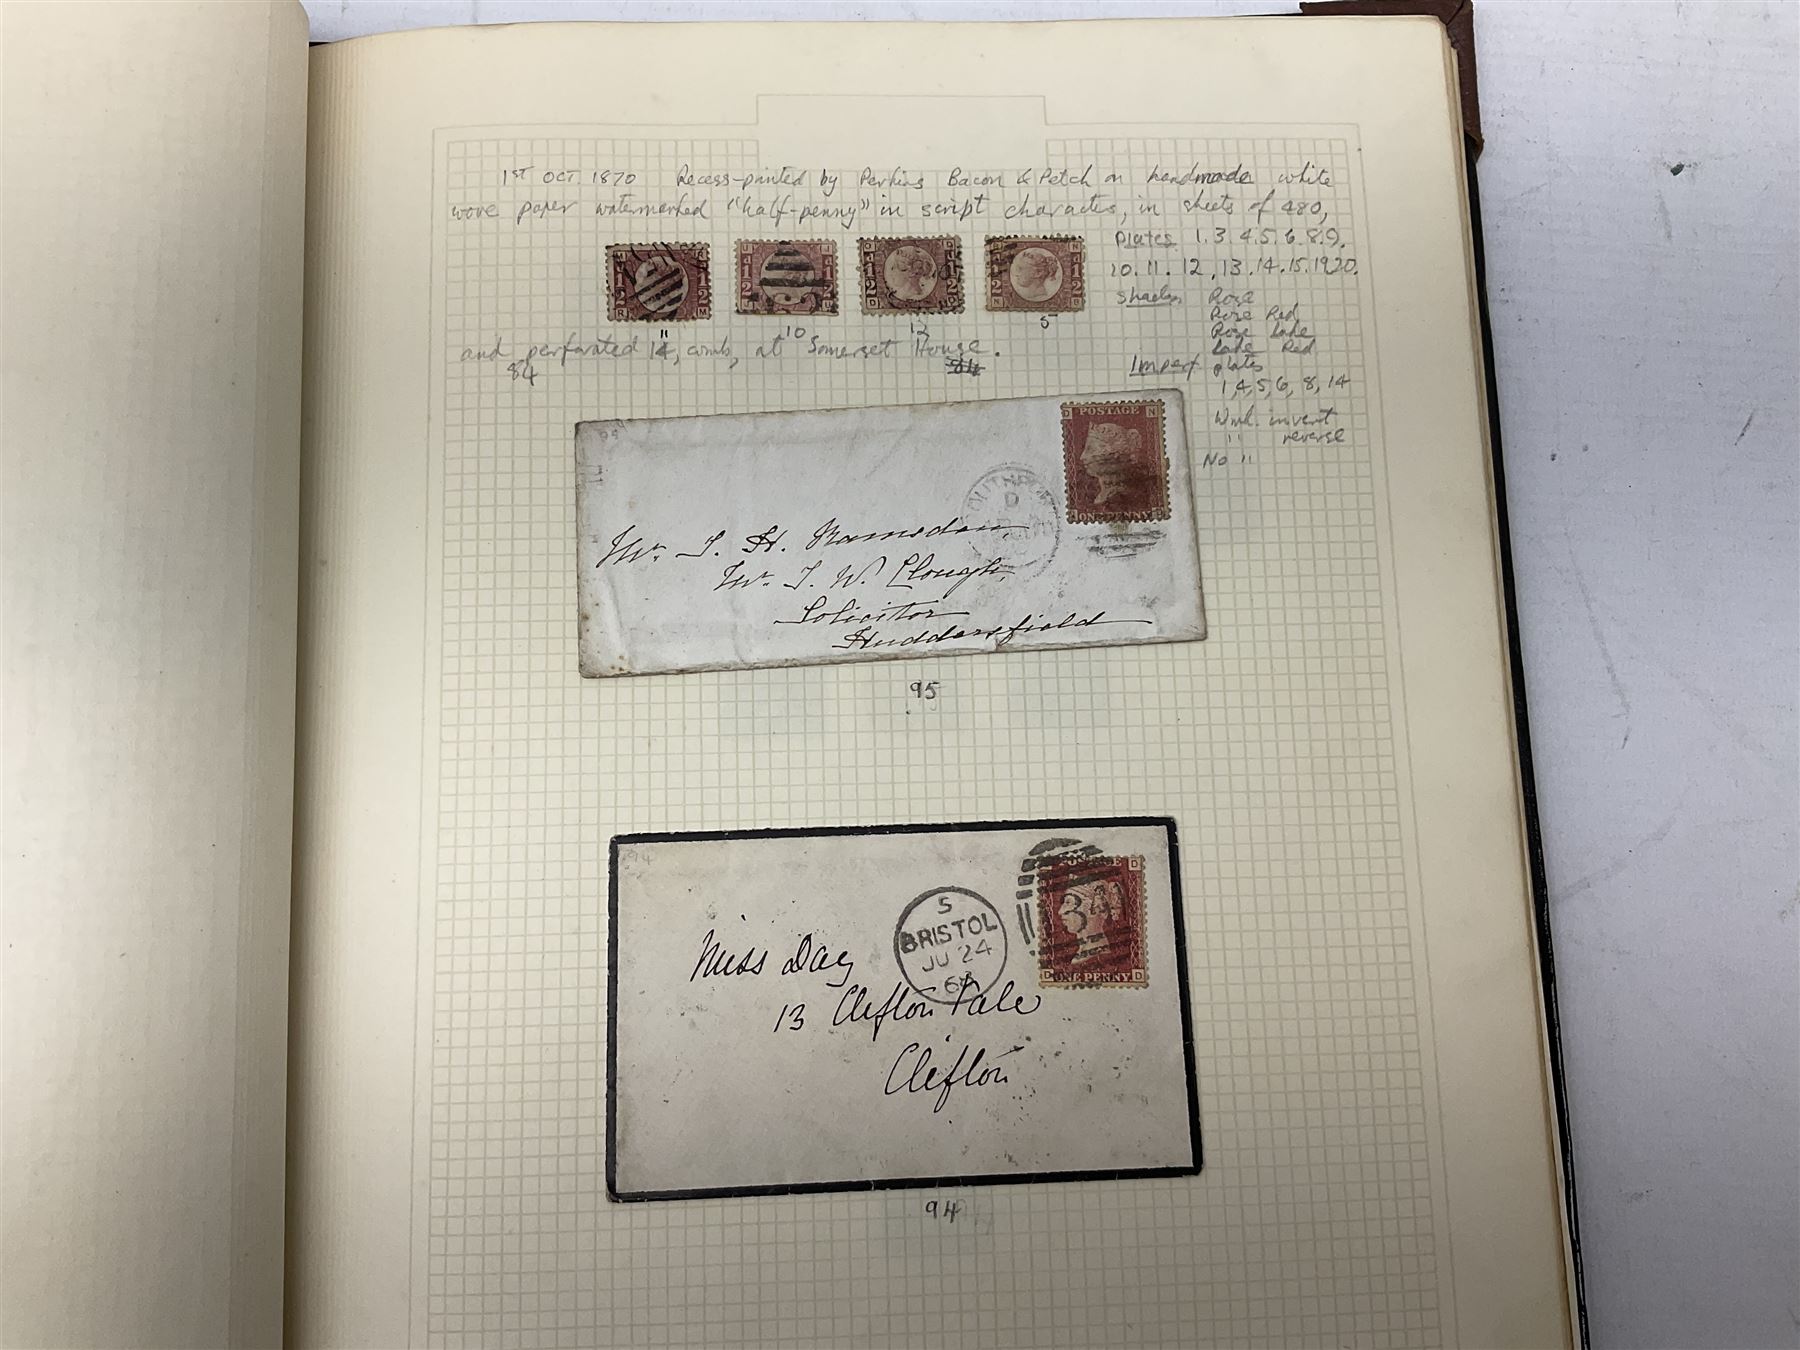 1ST OCT. 1870 Recess-printed by Perkins Bacon & Petch on handmade white
wove paper watermarked "half-penny" in script characters, in sheets of 480,
Plates 1.3.4.5.6.8.9.
10.11.12.13.14.15.19.20.
M A 1 2 1 2 R M
U J 1 2 1 2 J U
O D 1 2 1 2 D O
N 1 2 1 2 N B
11 10 12 5
and perforated 14, comb, at Somerset House.
84
84
Shades Rose
Rose Red
Rose Lake
Lake Red
Imperf plates
1,4,5,6,8,14
Wmk. invert
" reverse
No "
95
D POSTAGE N
ONE PENNY
SOUTHPORT
D
Mr. J. H. Ramsden,
Mr. J. W. Clough,
Solicitor
Huddersfield
95
94
POSTAGE D
D ONE PENNY D
34
5
BRISTOL
JU 24
Miss Day
13 Clifton Vale
Clifton
94